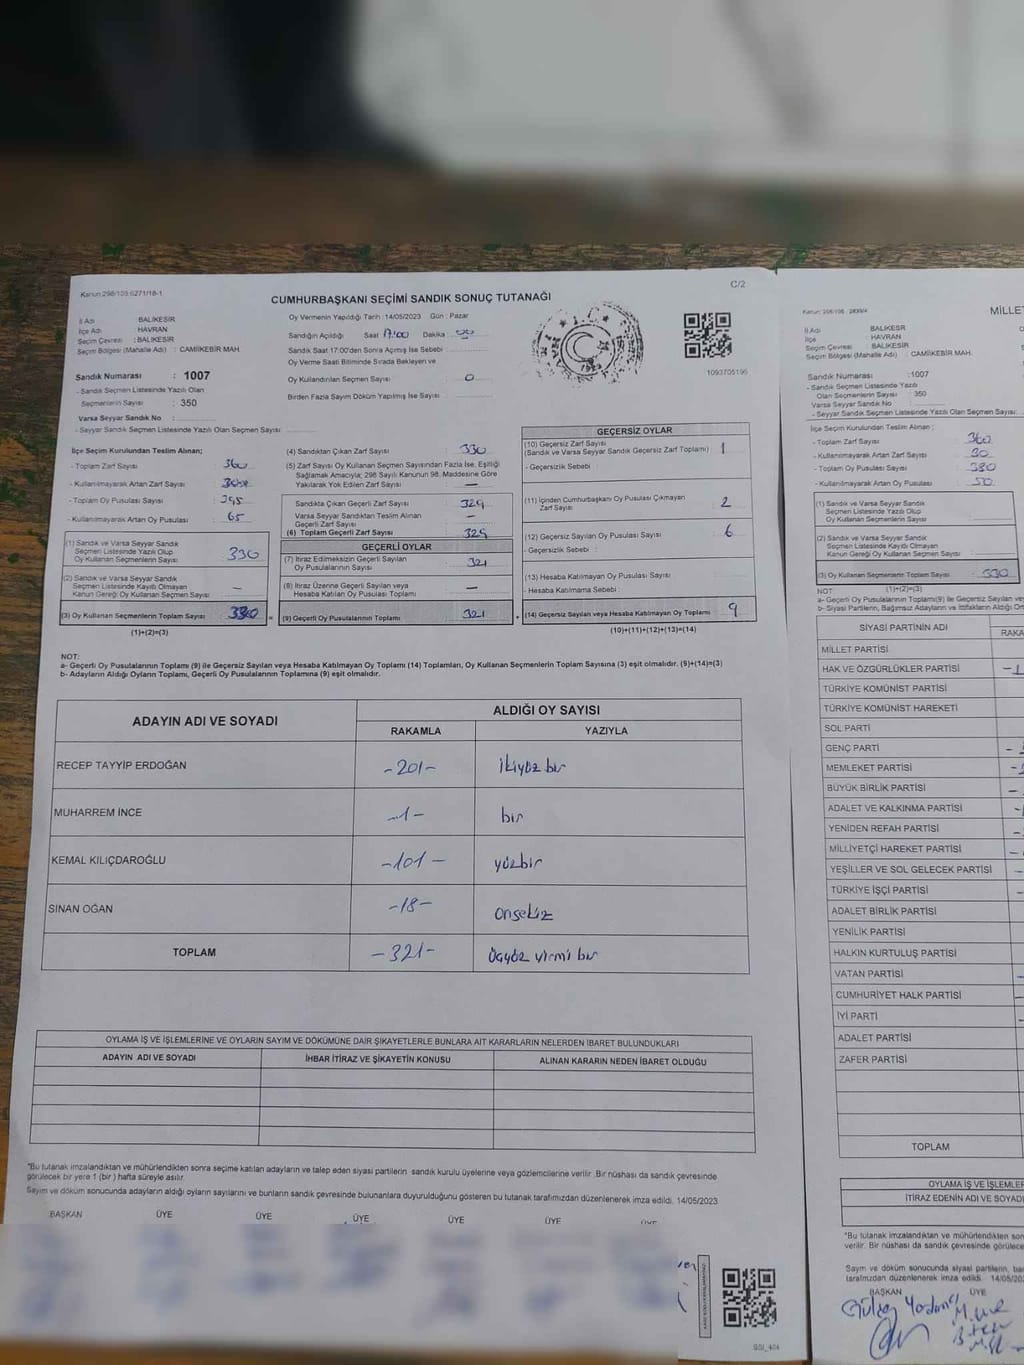 Kanun:298/105,6271/18-1
C/2
CUMHURBAŞKANI SEÇİMİ SANDIK SONUÇ TUTANAĞI
İl Adı : BALIKESİR
İlçe Adı : HAVRAN
Seçim Çevresi : BALIKESİR
Seçim Bölgesi (Mahalle Adı) : CAMİİKEBİR MAH.
Sandık Numarası : 1007
- Sandık Seçmen Listesinde Yazılı Olan
Seçmenlerin Sayısı : 350
Varsa Seyyar Sandık No :
- Seyyar Sandık Seçmen Listesinde Yazılı Olan Seçmen Sayısı
Oy Vermenin Yapıldığı Tarih : 14/05/2023 Gün : Pazar
Sandığın Açıldığı Saat 17:00 Dakika 00
Sandık Saat 17:00'den Sonra Açılmış İse Sebebi
Oy Verme Saati Bitiminde Sırada Bekleyen ve
Oy Kullandırılan Seçmen Sayısı 0
Birden Fazla Sayım Döküm Yapılmış İse Sayısı
1093705196
İlçe Seçim Kurulundan Teslim Alınan;
- Toplam Zarf Sayısı 360
- Kullanılmayarak Artan Zarf Sayısı
- Toplam Oy Pusulası Sayısı 395
- Kullanılmayarak Artan Oy Pusulası 65
(1) Sandık ve Varsa Seyyar Sandık
Seçmen Listesinde Yazılı Olup
Oy Kullanan Seçmenlerin Sayısı 330
(2) Sandık ve Varsa Seyyar Sandık
Seçmen Listesinde Kaydı Olmayan
Kanun Gereği Oy Kullanan Seçmen Sayısı -
(3) Oy Kullanan Seçmenlerin Toplam Sayısı 330
(1)+(2)=(3)
(4) Sandıktan Çıkan Zarf Sayısı 330
(5) Zarf Sayısı Oy Kullanan Seçmen Sayısından Fazla İse, Eşitliği
Sağlamak Amacıyla; 298 Sayılı Kanunun 98. Maddesine Göre
Yakılarak Yok Edilen Zarf Sayısı -
Sandıkta Çıkan Geçerli Zarf Sayısı 329
Varsa Seyyar Sandıktan Teslim Alınan
Geçerli Zarf Sayısı -
(6) Toplam Geçerli Zarf Sayısı 329
GEÇERLİ OYLAR
(7) İtiraz Edilmeksizin Geçerli Sayılan
Oy Pusulasının Sayısı 321
(8) İtiraz Üzerine Geçerli Sayılan veya
Hesaba Katılan Oy Pusulası Toplamı -
(9) Geçerli Oy Pusulalarının Toplamı 321
GEÇERSİZ OYLAR
(10) Geçersiz Zarf Sayısı
(Sandık ve Varsa Seyyar Sandık Geçersiz Zarf Toplamı) 1
- Geçersizlik Sebebi :
(11) İçinden Cumhurbaşkanı Oy Pusulası Çıkmayan
Zarf Sayısı 2
(12) Geçersiz Sayılan Oy Pusulası Sayısı 6
- Geçersizlik Sebebi :
(13) Hesaba Katılmayan Oy Pusulası Sayısı
- Hesaba Katılmama Sebebi :
(14) Geçersiz Sayılan veya Hesaba Katılmayan Oy Toplamı 9
(10)+(11)+(12)+(13)=(14)
NOT:
a- Geçerli Oy Pusulalarının Toplamı (9) ile Geçersiz Sayılan veya Hesaba Katılmayan Oy Toplamı (14) Toplamları, Oy Kullanan Seçmenlerin Toplam Sayısına (3) eşit olmalıdır. (9)+(14)=(3)
b- Adayların Aldığı Oyların Toplamı, Geçerli Oy Pusulalarının Toplamına (9) eşit olmalıdır.
ADAYIN ADI VE SOYADI
ALDIĞI OY SAYISI
RAKAMLA YAZIYLA
RECEP TAYYİP ERDOĞAN -201- ikiyüz bir
MUHARREM İNCE -1- bir
KEMAL KILIÇDAROĞLU -101- yüzbir
SİNAN OĞAN -18- onsekiz
TOPLAM -321- üçyüz yirmi bir
OYLAMA İŞ VE İŞLEMLERİNE VE OYLARIN SAYIM VE DÖKÜMÜNE DAİR ŞİKAYETLERLE BUNLARA AİT KARARLARIN NELERDEN İBARET BULUNDUKLARI
ADAYIN ADI VE SOYADI İHBAR İTİRAZ VE ŞİKAYETİN KONUSU ALINAN KARARIN NEDEN İBARET OLDUĞU
*Bu tutanak imzalandıktan ve mühürlendikten sonra seçime katılan adayların ve talep eden siyasi partilerin sandık kurulu üyelerine veya gözlemcilerine verilir. Bir nüshası da sandık çevresinde
görülecek bir yere 1 (bir) hafta süreyle asılır.
Sayım ve döküm sonucunda adayların aldığı oyların sayılarını ve bunların sandık çevresinde bulunanlara duyurulduğunu gösteren bu tutanak tarafımızdan düzenlenerek imza edildi. 14/05/2023
BAŞKAN ÜYE ÜYE ÜYE ÜYE ÜYE ÜYE
MİLLET
İl Adı : BALIKESİR
İlçe : HAVRAN
Seçim Çevresi : BALIKESİR
Seçim Bölgesi (Mahalle Adı) : CAMİİKEBİR MAH.
Sandık Numarası : 1007
- Sandık Seçmen Listesinde Yazılı
Olan Seçmenlerin Sayısı : 350
Varsa Seyyar Sandık No :
- Seyyar Sandık Seçmen Listesinde Yazılı Olan Seçmen Sayısı:
İlçe Seçim Kurulundan Teslim Alınan ;
- Toplam Zarf Sayısı 360
- Kullanılmayarak Artan Zarf Sayısı 30
- Toplam Oy Pusulası Sayısı 380
- Kullanılmayarak Artan Oy Pusulası Sayısı 50
(1) Sandık ve Varsa Seyyar Sandık
Seçmen Listesinde Yazılı Olup
Oy Kullanan Seçmenlerin Sayısı
(2) Sandık ve Varsa Seyyar Sandık
Seçmen Listesinde Kaydı Olmayan
Kanun Gereği Oy Kullanan Seçmen Sayısı :
(3) Oy Kullanan Seçmenlerin Toplam Sayısı : 330
NOT (1)+(2)=(3)
a- Geçerli Oy Pusulalarının Toplamı(9) ile Geçersiz Sayılan
b- Siyasi Partilerin, Bağımsız Adayların ve İttifakların Aldığı
SİYASİ PARTİNİN ADI
MİLLET PARTİSİ
HAK VE ÖZGÜRLÜKLER PARTİSİ
TÜRKİYE KOMÜNİST PARTİSİ
TÜRKİYE KOMÜNİST HAREKETİ
SOL PARTİ
GENÇ PARTİ
MEMLEKET PARTİSİ
BÜYÜK BİRLİK PARTİSİ
ADALET VE KALKINMA PARTİSİ
YENİDEN REFAH PARTİSİ
MİLLİYETÇİ HAREKET PARTİSİ
YEŞİLLER VE SOL GELECEK PARTİSİ
TÜRKİYE İŞÇİ PARTİSİ
ADALET BİRLİK PARTİSİ
YENİLİK PARTİSİ
HALKIN KURTULUŞ PARTİSİ
VATAN PARTİSİ
CUMHURİYET HALK PARTİSİ
İYİ PARTİ
ADALET PARTİSİ
ZAFER PARTİSİ
TOPLAM
OYLAMA İŞ VE İŞLEMLER
İTİRAZ EDENİN ADI VE SOYADI
*Bu tutanak imzalandıktan ve mühürlendikten
verilir. Bir nüshası da sandık çevresinde görülecek
Sayım ve döküm sonucunda siyasi partilerin,
tarafımızdan düzenlenerek imza edildi.
BAŞKAN ÜYE